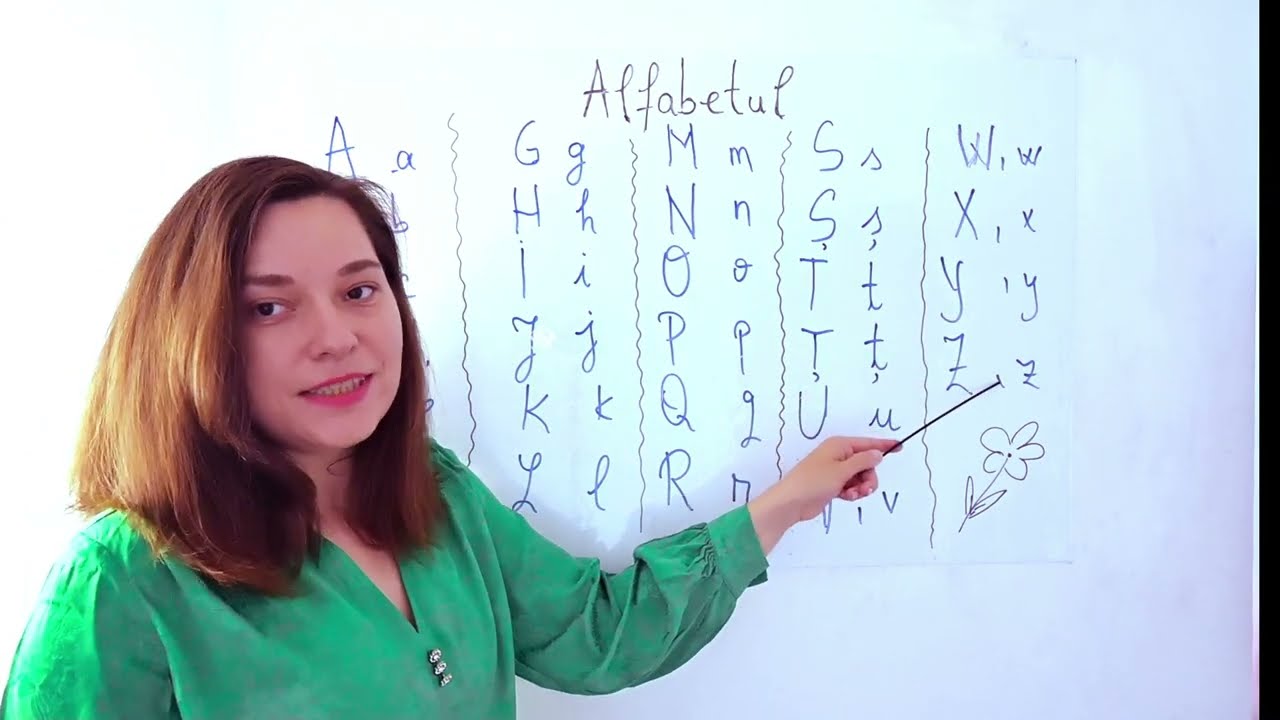 Alfabetul
A a
b
G g
H h
I i
J j
K k
L l
M m
N n
O o
P p
Q q
R r
S s
Ș ș
T t
Ț ț
U u
V, v
W, w
X, x
Y, y
Z, z